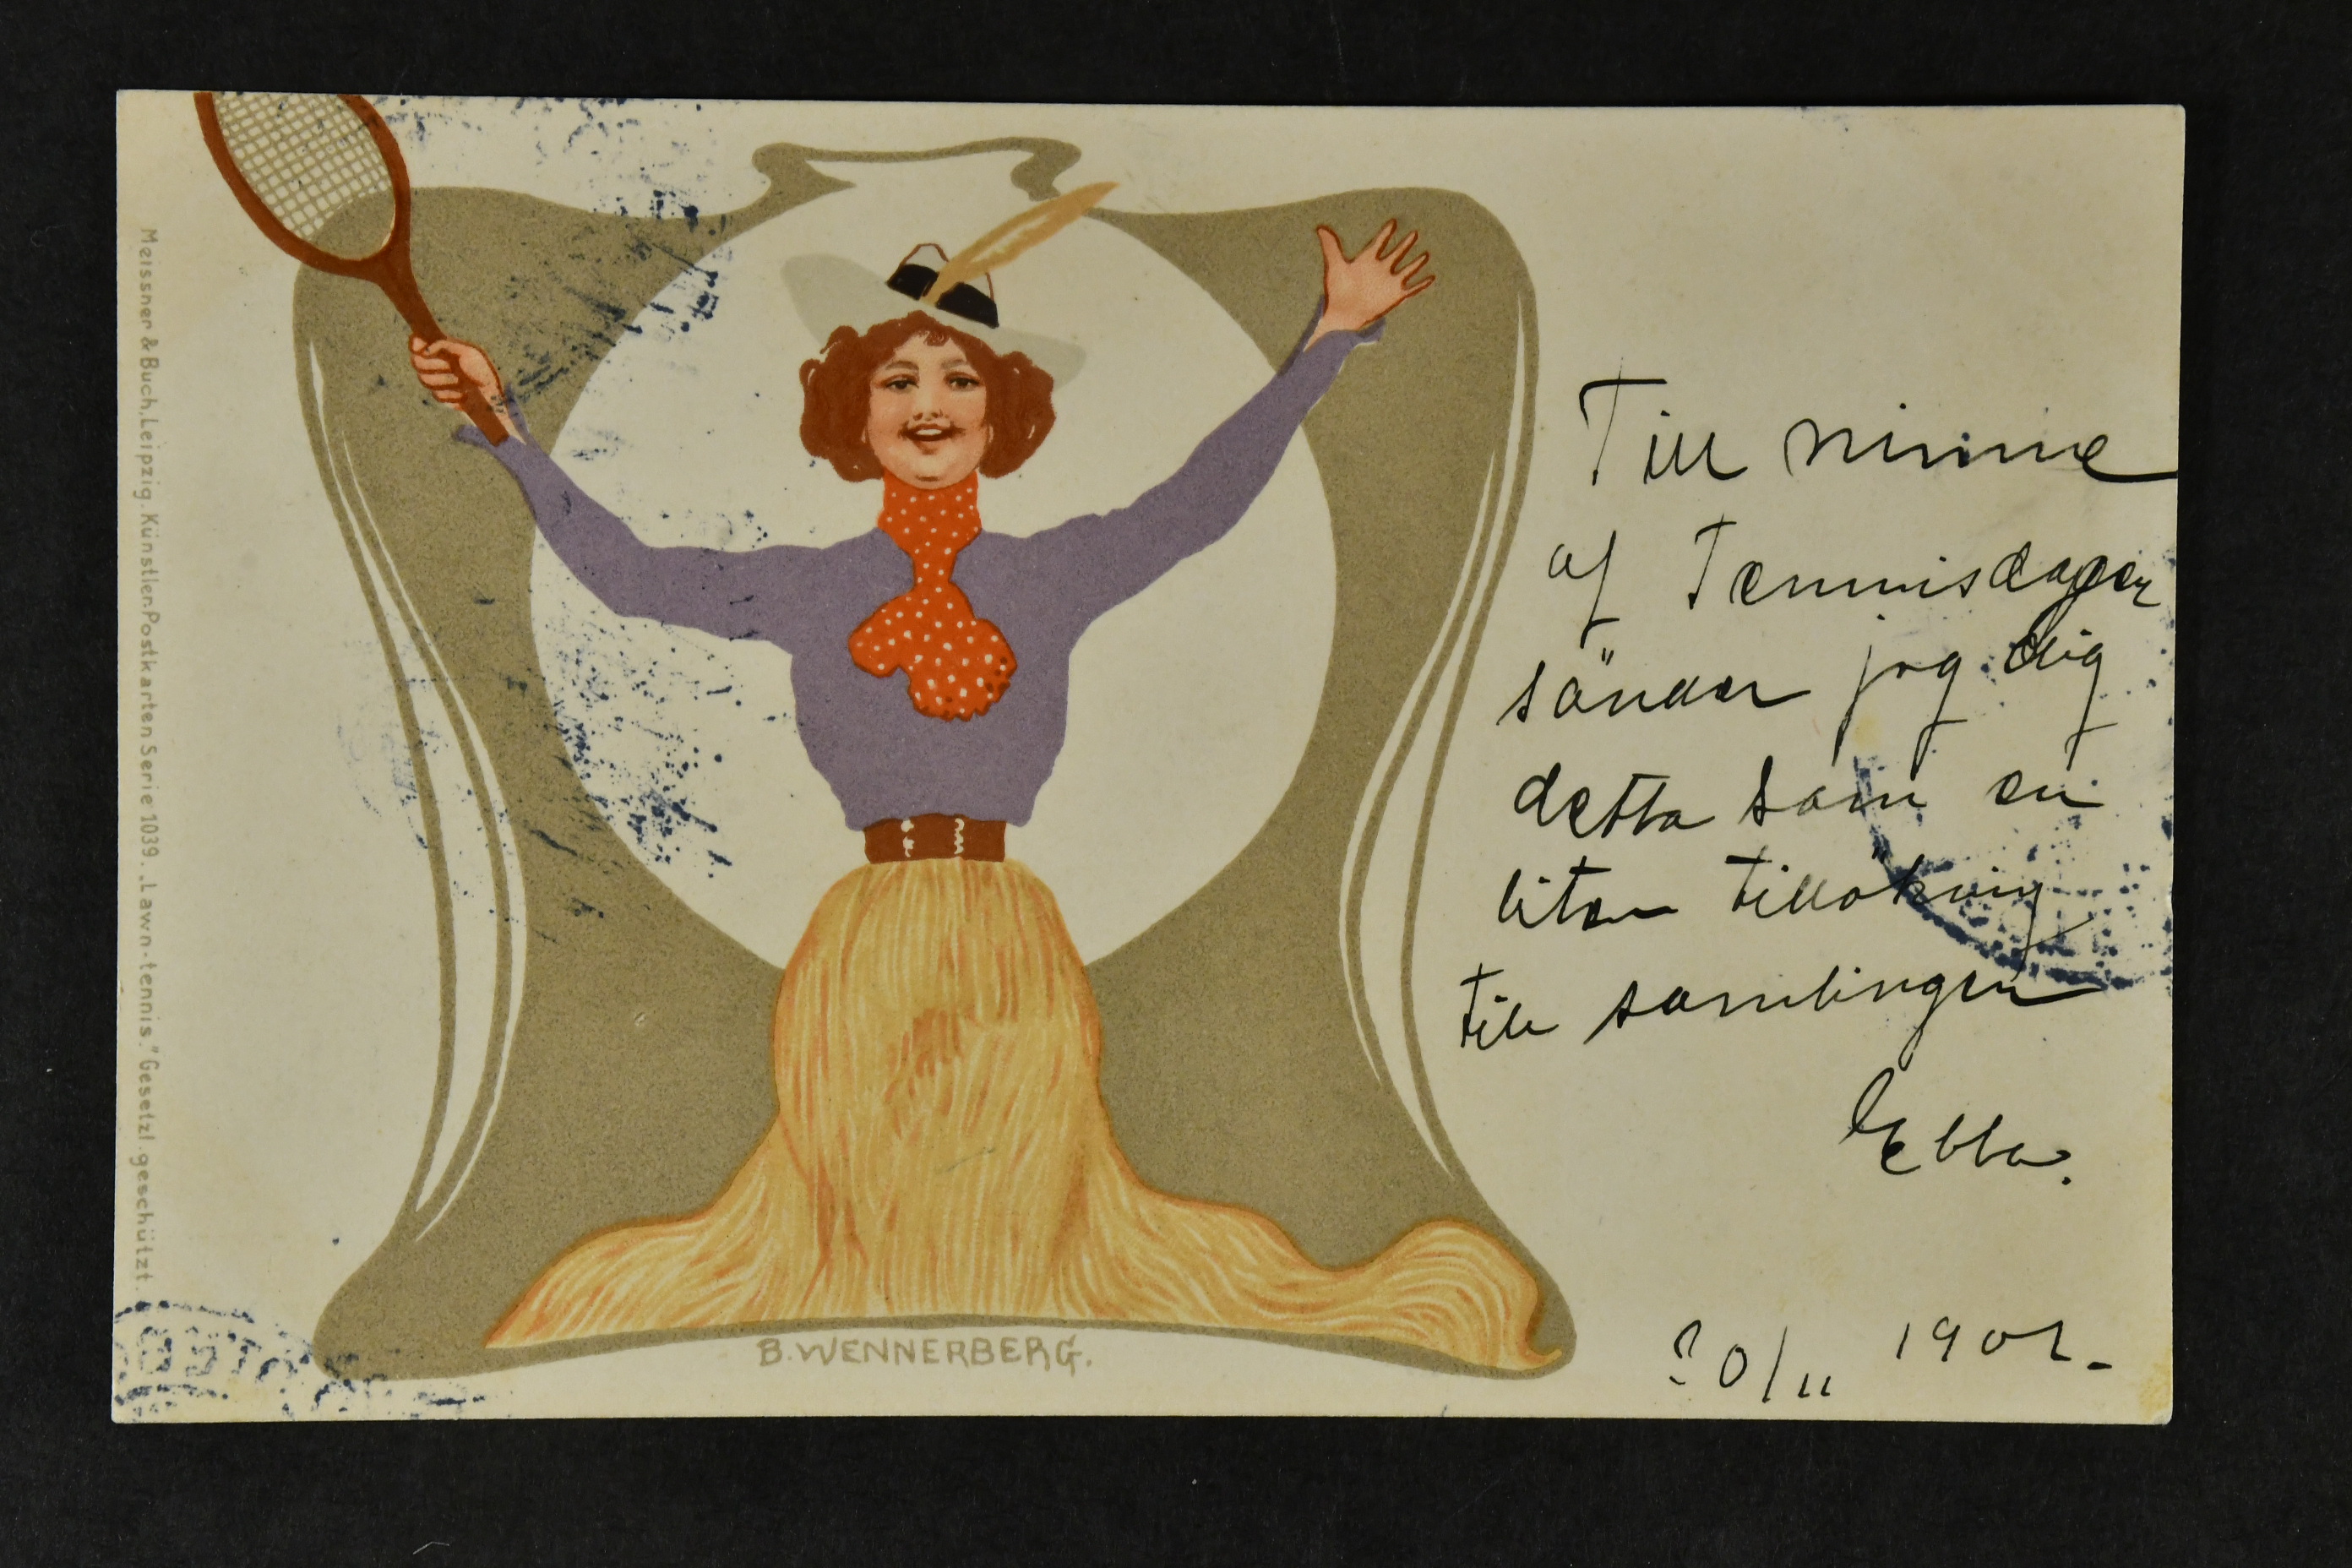 Meissner & Buch, Leipzig. Künstler-Postkarten Serie 1039. „Lawn-tennis." Gesetzl. geschützt.
B. WENNERBERG.
Till minne
af Tennisdagen
sänder jag dig
detta som en
liten tillökning
till samlingen
Ebba.
20/11 1901.